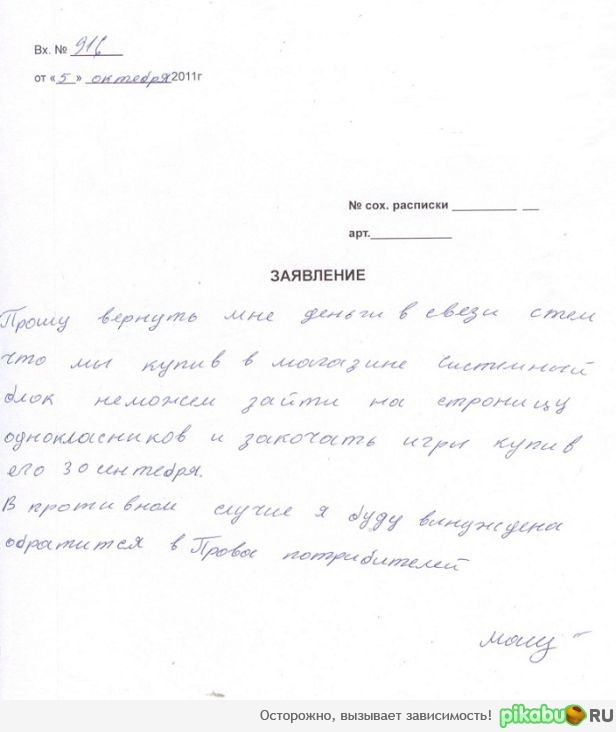 Вх. № 916
от «5» октября 2011г
№ сох. расписки ________ __
арт.__________
ЗАЯВЛЕНИЕ
Прошу вернуть мне деньги в свези стем
что мы купив в магазине систимный
блок неможем зайти на строницу
однокласников и закочать игры купив
его 30 сентебря.
В противном случие я буду вынуждена
обратится в Права потрибителей
Осторожно, вызывает зависимость! pikabu.RU